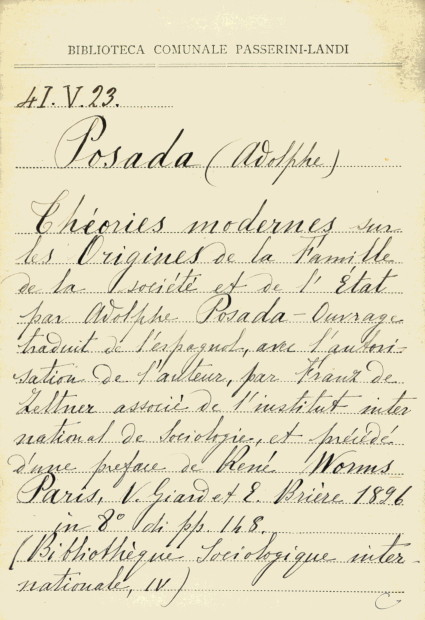 BIBLIOTECA COMUNALE PASSERINI-LANDI
4I.V.23.
Posada (Adolphe)
Théories modernes sur
les Origines de la Famille
de la société et de l'État
par Adolphe Posada - Ouvrage
traduit de l'espagnol, avec l'autori-
sation de l'auteur, par Franz de
Zeltner associé de l'institut inter
national de Sociologie, et précédé
d'une preface de René Worms
Paris, V. Giard et E. Brière 1896
in 8° di pp. 148.
(Bibliothèque Sociologique inter-
nationale, IV)